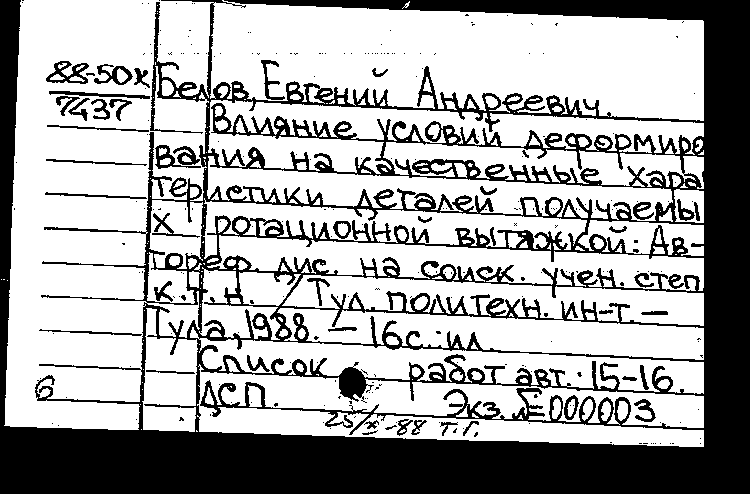 88-50к Белов, Евгений Андреевич.
7437 Влияние условий деформиро
вания на качественные хара
теристики деталей получаемы
х ротационной вытяжкой: Ав-
тореф. дис. на соиск. учен. степ
к.т.н. / Тул. политехн. ин-т. —
Тула, 1988. — 16с.: ил.
Список работ авт.: 15-16.
6 ДСП. Экз. № 000003.
25/XI-88 Т.Г.